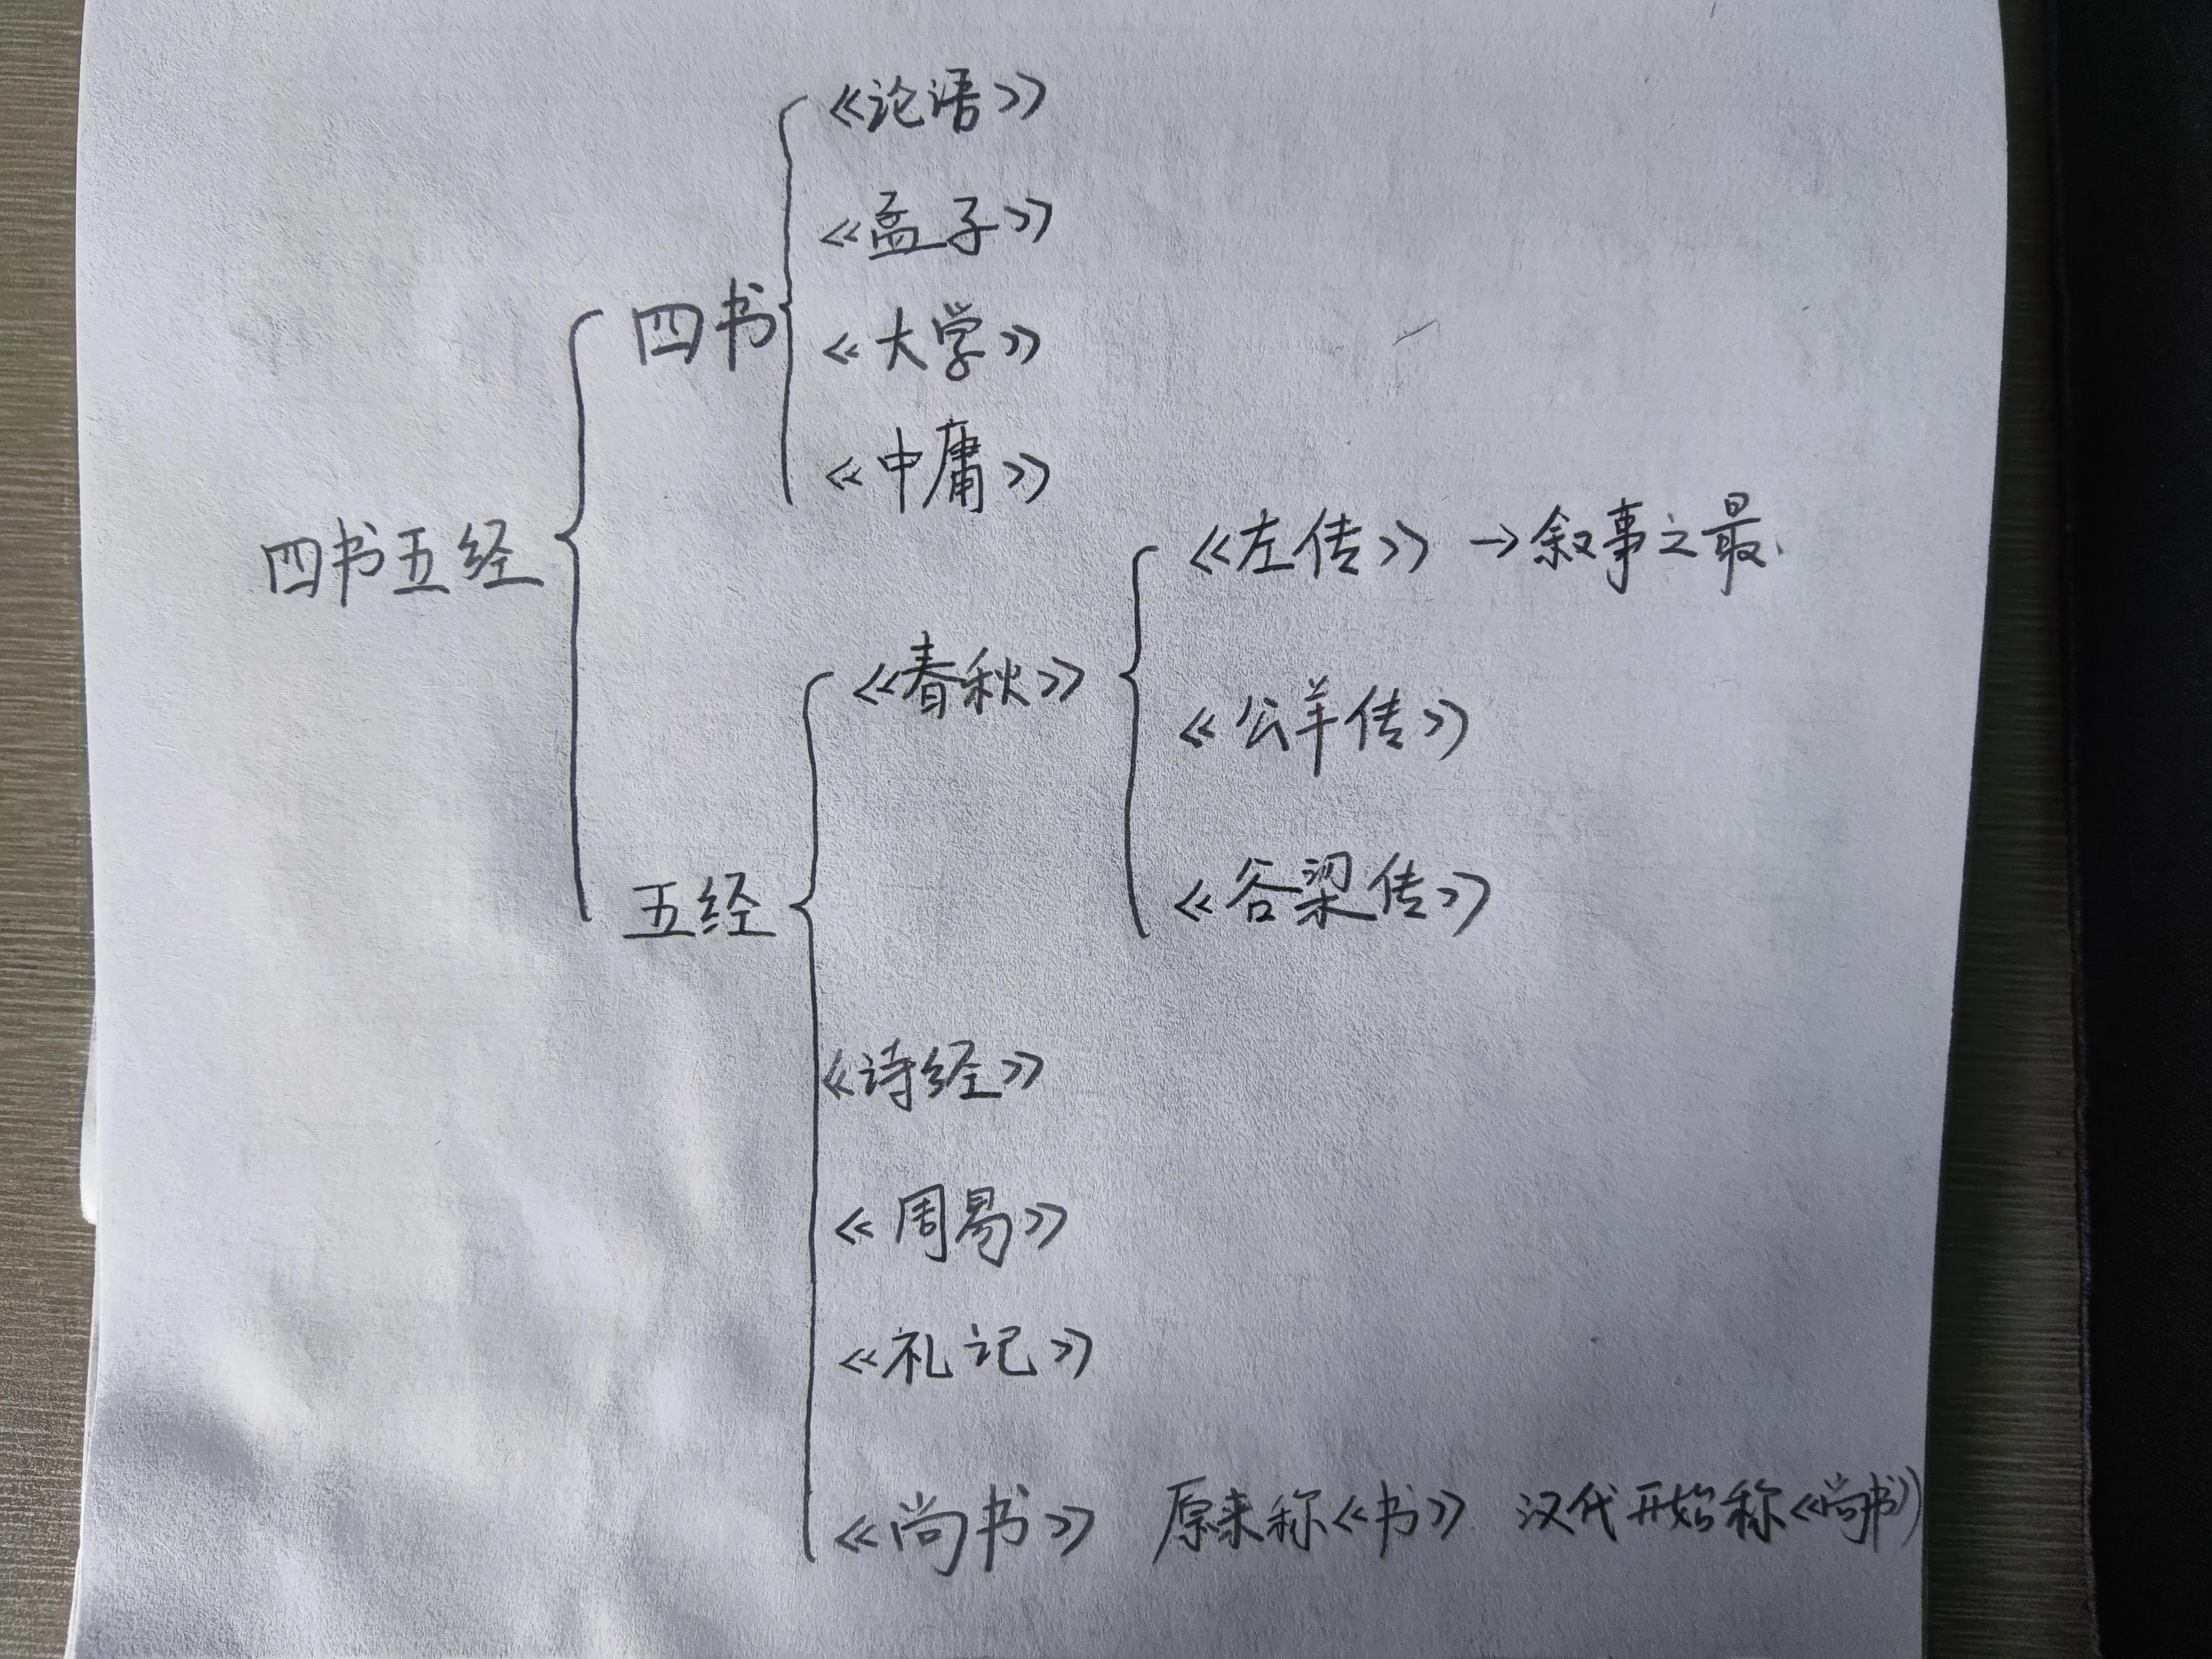 《论语》
《孟子》
四书
《大学》
《中庸》
四书五经
《左传》→叙事之最
《春秋》
《公羊传》
《谷梁传》
五经
《诗经》
《周易》
《礼记》
《尚书》 原来称《书》 汉代开始称《尚书》